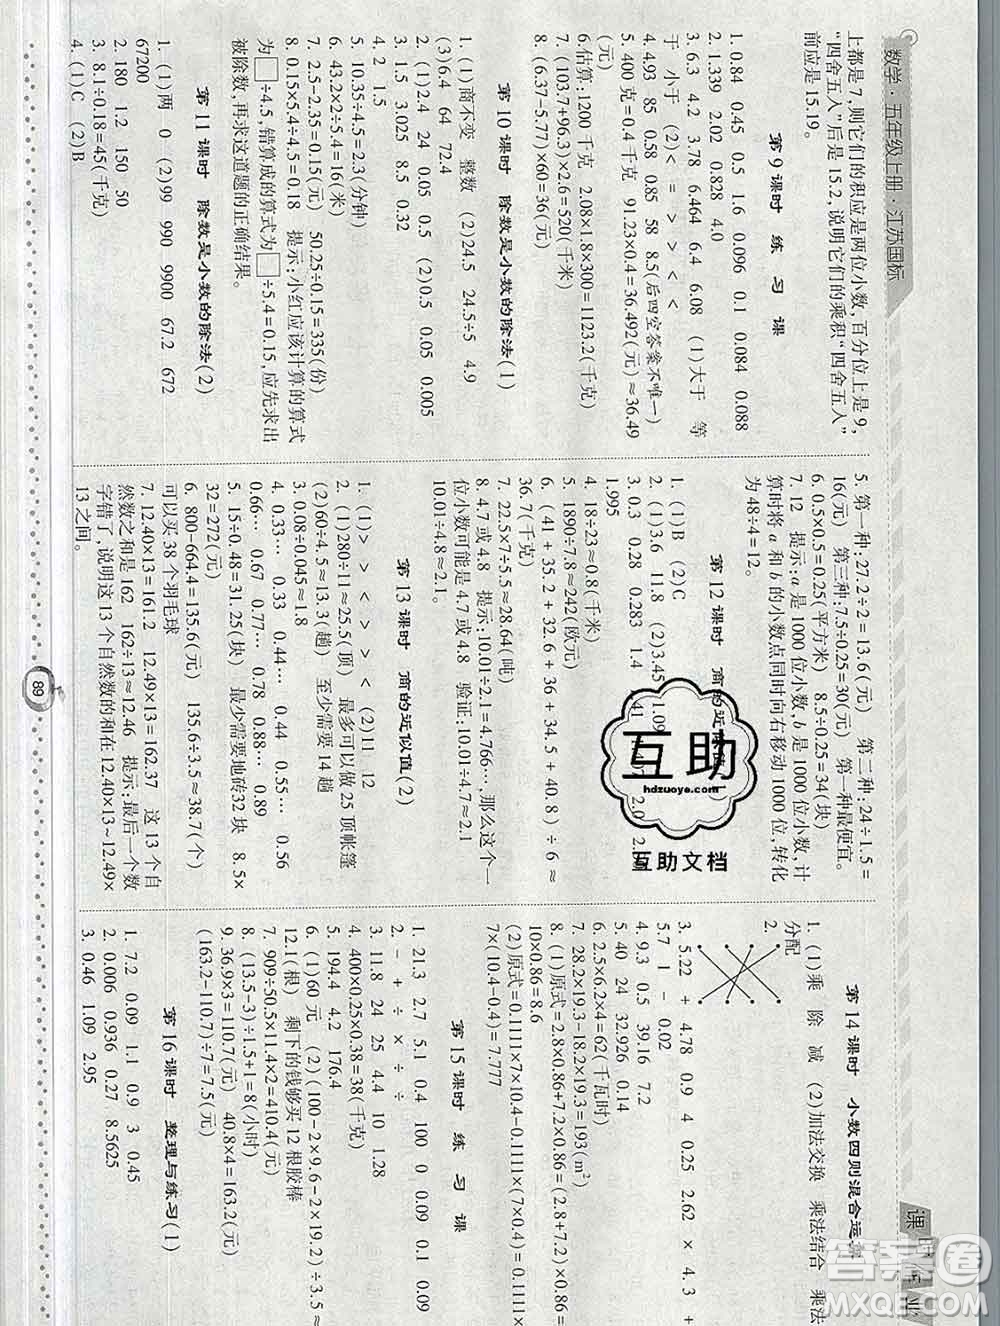 数学·五年级上册·江苏国标
上都是7,则它们的积应是两位小数,百分位上是9,
“四舍五入”后是15.2,说明它们的乘积“四舍五入”
前应是15.19。
第9课时　练　习　课
1. 0.84　0.45　0.5　1.6　0.096　0.1　0.084　0.088
2. 1.339　0.02　0.828　4.0
3. 6.3　4.2　3.78　6.464　6.4　6.08　(1)大于　等
于　小于　(2)<　=　>　>　<　<
4. 4.93　85　0.58　85　58　8.5(后四空答案不唯一)
5.
6. 估算:1200千克　2.08×1.8×300=1123.2(千克)
7. (103.7+96.3)×2.6=520(千米)
8. (6.37-5.77)×60=36(元)
第10课时　除数是小数的除法(1)
1. (1)商不变　整数　(2)4.9　24.5÷5　4.9
(3)6.4　64　72.4
2. (1)2.4　24　0.05　0.5　(2)4　0.04　0.05　0.005
3. 1.5　3.025　8.5　0.32
4. 2　1.5
5. 10.35÷4.5=2.3(分钟)
6. 43.2÷2.7=16(米)
7. 2.5-2.35=0.15(元)　50.25÷0.15=335(份)
8. 0.15×5.4÷4.5=0.18　提示:小红应该计算的算式
为□÷4.5,错算成的算式为□÷5.4=0.15,应先求出
被除数,再求这道题的正确结果。
第11课时　除数是小数的除法(2)
1. (1)两　0　(2)99　990　9900　67.2　672
67200
2. 180　1.2　150　50
3. 8.1÷0.18=45(千克)
4. (1)C　(2)B
5. 第一种:27.2÷2=13.6(元)　第二种:24÷1.5=
16(元)　第三种:7.5÷0.25=30(元)　第一种最便宜。
6. 0.5×0.5=0.25(平方米)　8.5÷0.25=34(块)
7. 12　提示:a是1000位小数,b是1000位小数,计
算时将a和b的小数点同时向右移动1000位,转化
为48÷4=12。
第12课时　商的近似值
1. (1)B　(2)C
2. (1)3.6　11.8　(2)3.45　1.09
3. 0.3　0.28　0.283　1.4　2.0
1.995
4. 18÷23≈0.8(千米)
5. 1890÷7.8≈242(欧元)
6. (41+35.2+32.6+36.6+34.5+40.8)÷6≈
36.7(千克)
7. 22.5×7÷5.5≈28.64(吨)
8. 4.7或4.8　提示:10.01÷2.1=4.766…,那么这个一
位小数可能是4.7或4.8　验证:10.01÷4.7≈2.1
10.01÷4.8≈2.1。
第13课时　商的近似值(2)
1. (1)>　<　>　>　<　(2)11　12
2. (1)280÷11≈25.5(顶)　最多可以做25顶帐篷
(2)60÷4.5≈13.3(趟)　至少需要14趟
3. 0.08÷0.045≈1.8
4. 0.33…　0.33　0.44…　0.44　0.55…　0.56
0.66…　0.67　0.77…　0.78　0.88…　0.89
5. 15÷0.48=31.25(块)　最少需要地砖32块　8.5×
32=272(元)
6. 800-664.4=135.6(元)　135.6÷3.5≈38.7(个)
可以买38个羽毛球
7. 12.40×13=161.2　12.49×13=162.37　这13个自
然数之和是162　162÷13≈12.46　提示:最后一个数
字错了,说明这13个自然数的和在12.40×13~12.49×
13之间。
第14课时　小数四则混合运算
1. (1)乘　除　减　(2)加法交换　乘法结合　乘法
分配
2.
3. 5.22　+　4.78　0.9　4　0.25　2.62　×　4.3　+
5.7　1　-　0.02
4. 9.3　0.5　39.16　7.2
5. 40　24　32.926　0.14
6. 2.5×4×6.2=62(千瓦时)
7. 28.2×19.3-18.2×19.3=193(m²)
8. (1)原式=2.8×0.86+7.2×0.86=(2.8+7.2)×0.86=
10×0.86=8.6
(2)原式=0.1111×7×10.4-0.1111×(7×0.4)=0.1111×
7×(10.4-0.4)=7.777
第15课时　练　习　课
1. 21.3　2.7　5.1　0.4　100　0　0.09　0.1　0.09
2. -　+　÷　×　÷　÷
3. 11.8　24　25　4　1.25
4. 400×0.25×0.38=38(千克)
5. 194.4　4.2　176.4
6. (1)60元　(2)(100-2×9.6-2×19.2)÷3.5≈
12.1(根)　剩下的钱够买12根胶棒
7. 909÷50.5×11.4×2=410.4(元)
8. (13.5-3)÷1.5+1=8(小时)
9. 36.9×3=110.7(元)　40.8×4=163.2(元)
(163.2-110.7)÷7=7.5(元)
第16课时　整理与练习(1)
1. 7.2　0.09　1.1　0.9　3　0.45
2. 0.006　0.936　0.27　8.5625
3. 0.46　1.09　2.95
89
互助
hdzuoye.com
互助文档
答案圈
MXQE.COM